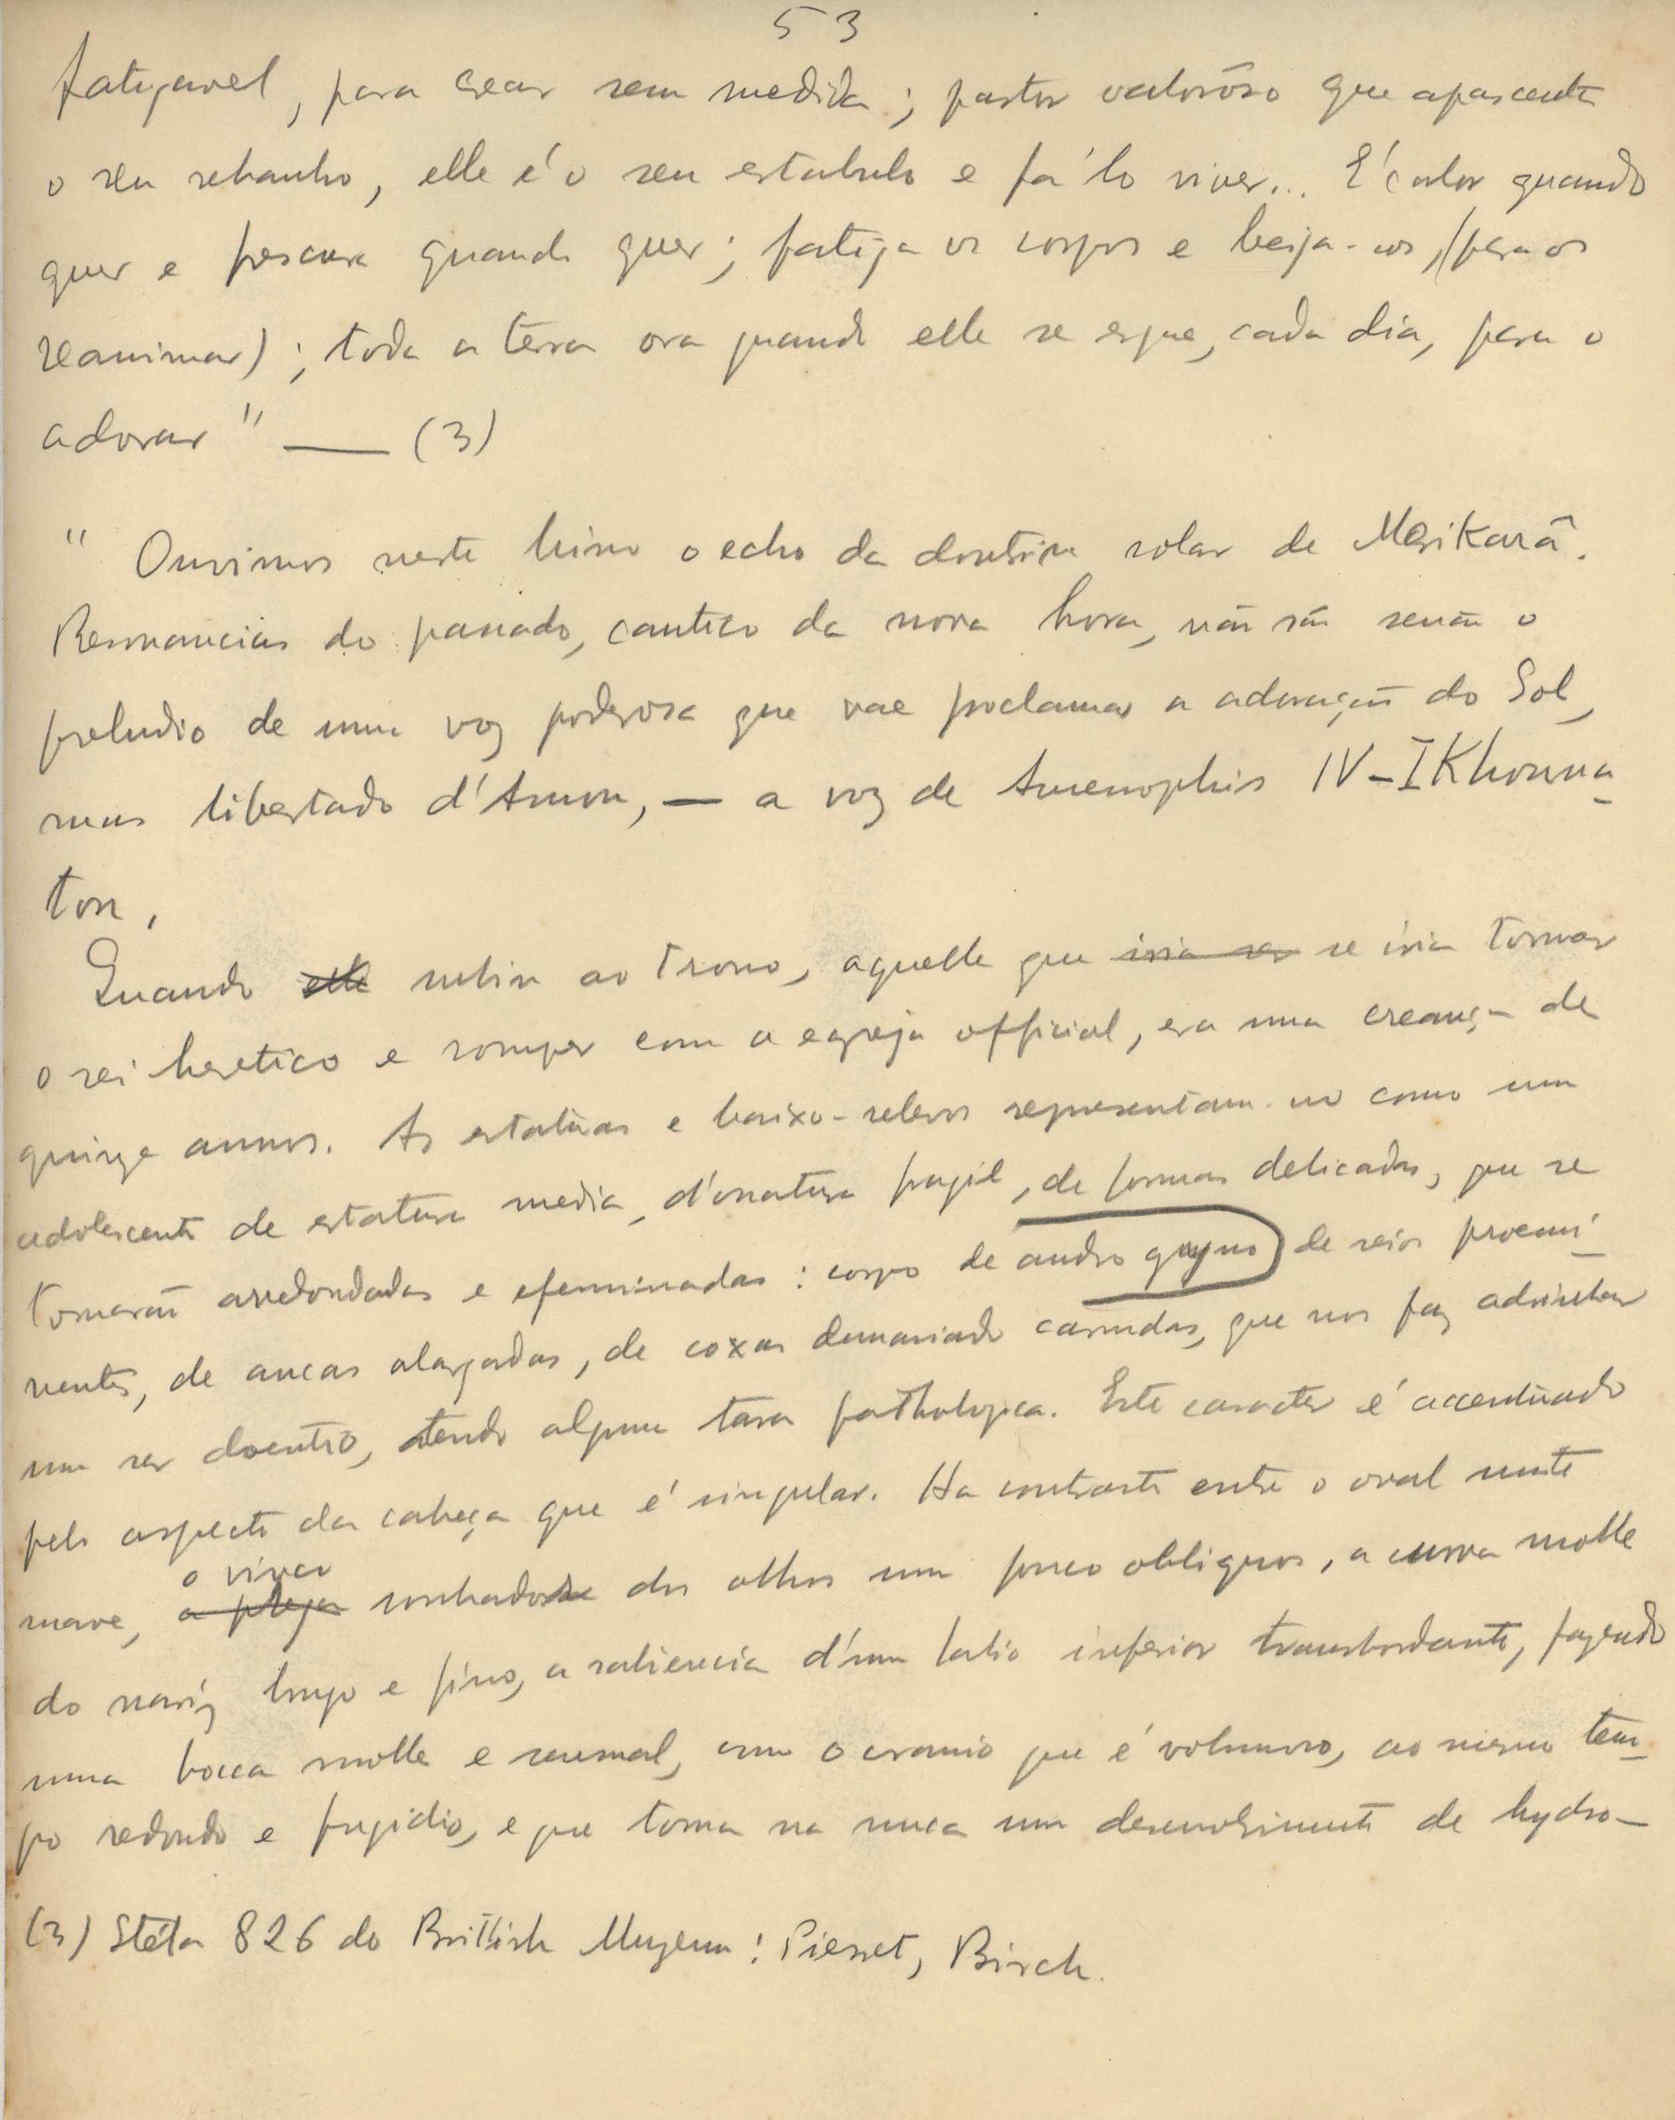 53
fatigavel, para crear sem medida; pastor valorôso que apascenta
o seu rebanho, elle é o seu estabulo e fá-lo viver... É calor quando
quer e frescura quando quer; fatiga os corpos e beija-os, (para os
reanimar); toda a terra ora quando elle se ergue, cada dia, para o
adorar" — (3)
" Ouvimos neste hino o echo da doutrina solar de MeriKarâ.
Resonancias do passado, cantico da nova hora, não são senão o
preludio de uma voz poderosa que vae proclamar a adoração do Sol,
mas libertado d'Amon, — a voz de Amenophis IV-IKhouna-
ton.
Quando elle subiu ao trono, aquelle que iria ser se iria tornar
o rei heretico e romper com a egreja official, era uma creança de
quinze annos. As estatuas e baixo-relevos representam-no como um
adolescente de estatura media, d'ossatura fragil, de formas delicadas, que se
tornarão arredondadas e efeminadas: corpo de andro gyno de seios proemi-
nentes, de ancas alargadas, de coxas demasiado carnudas, que nos faz advinhar
um ser doentio, tendo alguma tara pathologica. Este caracter é accentuado
pelo aspecto da cabeça que é singular. Ha contraste entre o oval muito
suave, a prega o vinco sonhador dos olhos um pouco obliquos, a curva molle
do nariz longo e fino, a saliencia d'um labio inferior transbordante, fazendo
uma bocca molle e sensual, com o cranio que é volumoso, ao mesmo tem-
po redondo e fugidio, e que toma na nuca um desenvolvimento de hydro-
(3) Stéla 826 do British Muzeum: Pierret, Birch.